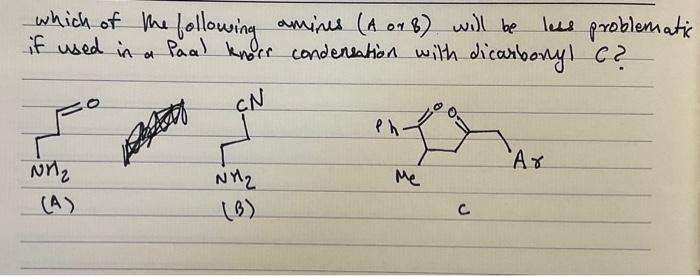 which of the following amines (A or B) will be less problematic
if used in a Paal knorr condensation with dicarbonyl C?
O CN O O
Ph
Ar
NH2 NH2 Me
(A) (B) C